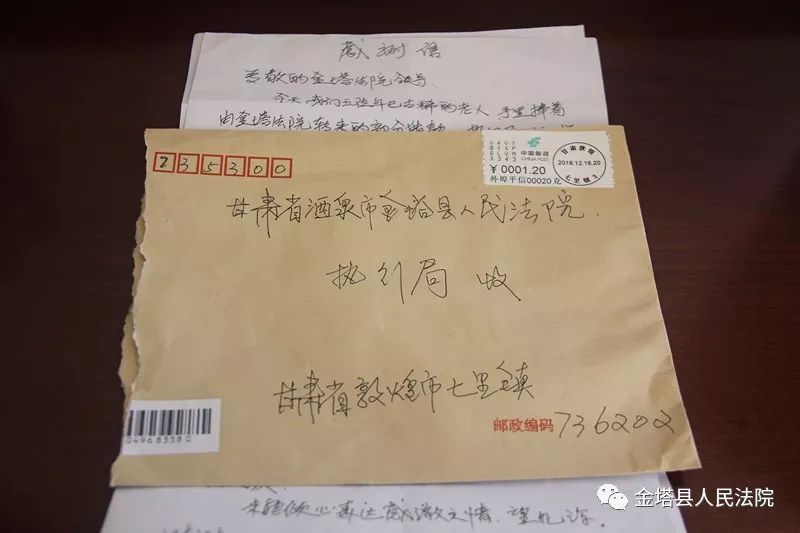 感谢信
尊敬的金塔法院领导:
今天 我们五位年已古稀的老人 手里捧着
由金塔法院转来的部分赔款
735300
中国邮政
CHINA POST
¥0001.20
外埠平信00020克
甘肃敦煌
2019.12.16.20
七里镇3
甘肃省酒泉市金塔县人民法院.
执行局 收
甘肃省敦煌市七里镇
邮政编码 736202
未能倾心表达感激之情、望
金塔县人民法院